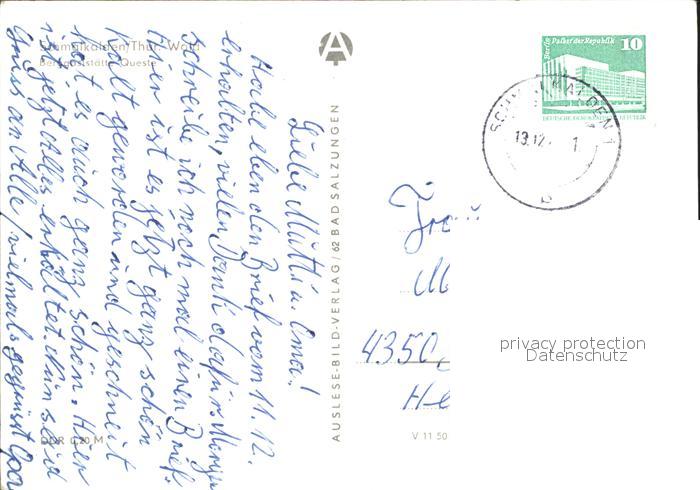 Schmalkalden/Thür. Wald
Berggaststätte Queste
Liebe Mutti u. Oma!
Habe eben den Brief vom 11.12.
erhalten, vielen Dank dafür. Morgen
schreibe ich noch mal einen Brief.
Hier ist es jetzt ganz schön
kalt geworden und geschneit
hat es auch ganz schön. Hier
ist jetzt alles erkältet. Nun seid
alle vielmals gegrüsst
DDR 0,20 M
AUSLESE-BILD-VERLAG / 62 BAD SALZUNGEN
V 11 50
Berlin Palast der Republik
10
DEUTSCHE DEMOKRATISCHE REPUBLIK
SCHMALKALDEN 1
13.12.
b
4350
privacy protection
Datenschutz